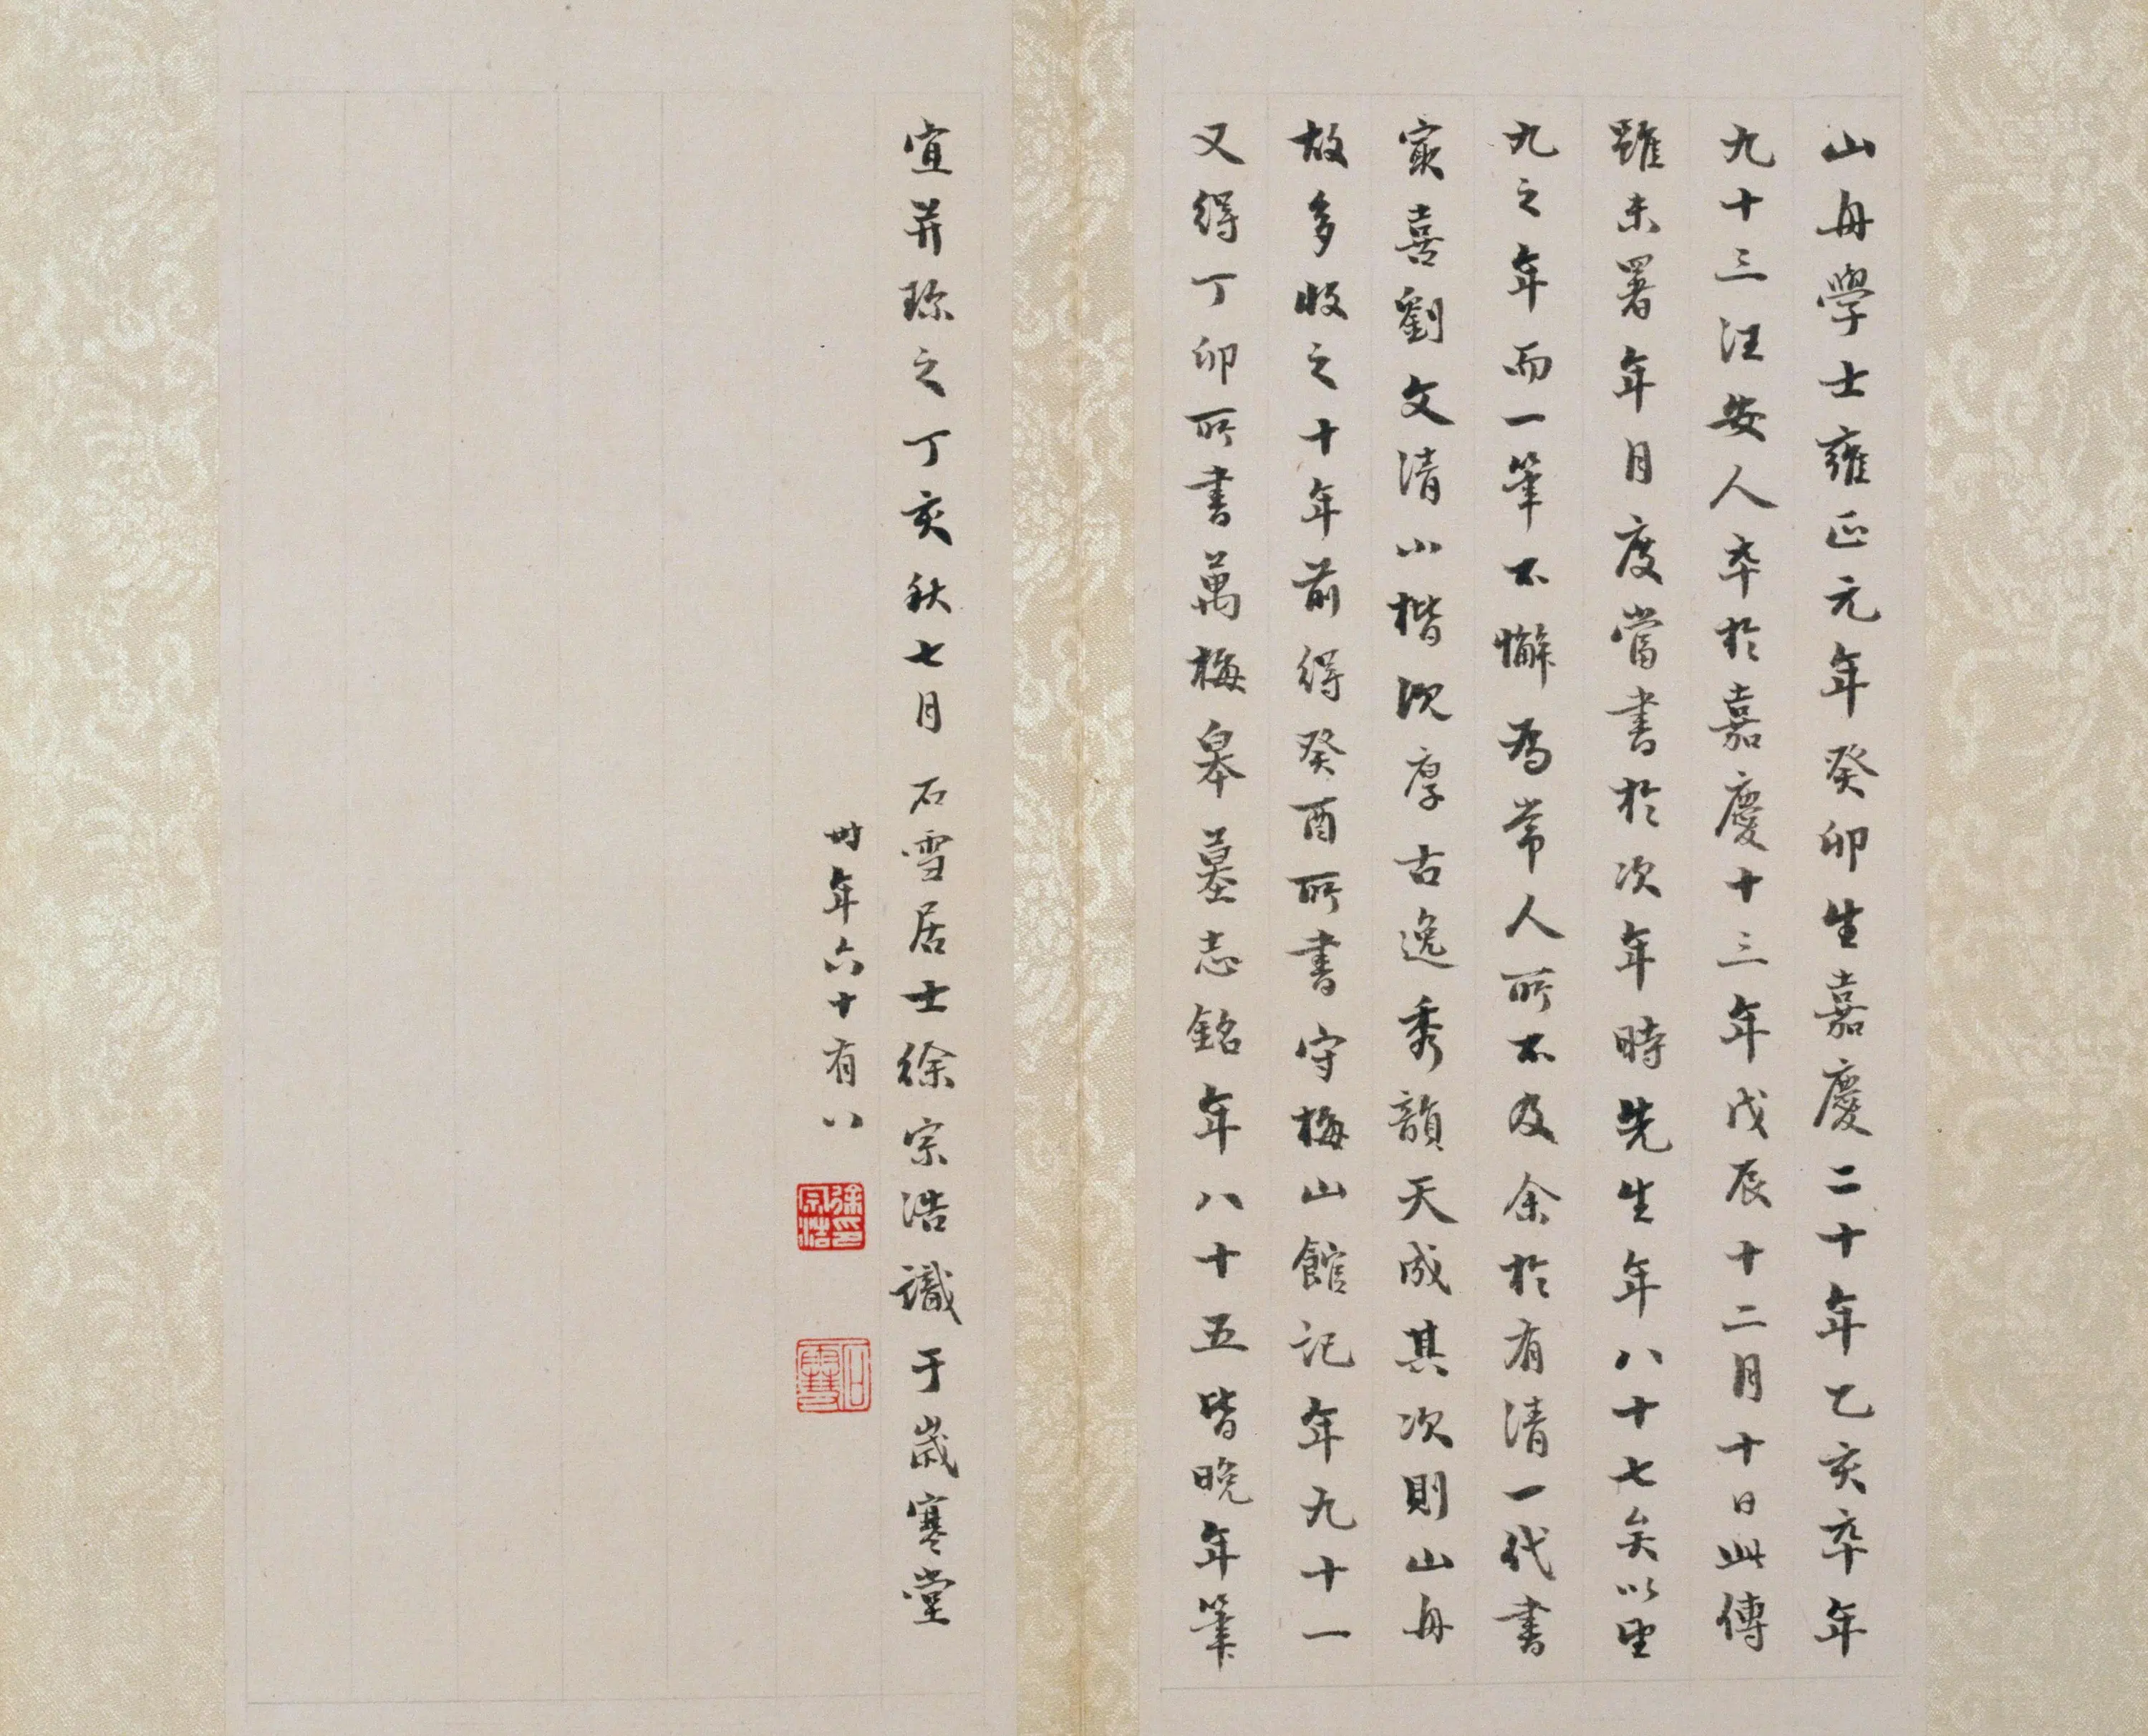 山舟學士雍正元年癸卯生嘉慶二十年乙亥卒年
九十三汪安人卒於嘉慶十三年戊辰十二月十日此傳
雖未署年月度當書於次年時先生年八十七矣以望
九之年而一筆不懈為常人所不及余於有清一代書
家喜劉文清小楷沈厚古逸秀韻天成其次則山舟
故多收之十年前得癸酉所書守梅山館記年九十一
又得丁卯所書萬梅皋墓志銘年八十五皆晚年筆
宜并珍之丁亥秋七月石雪居士徐宗浩識于歲寒堂
時年六十有八
徐宗浩印
石雪